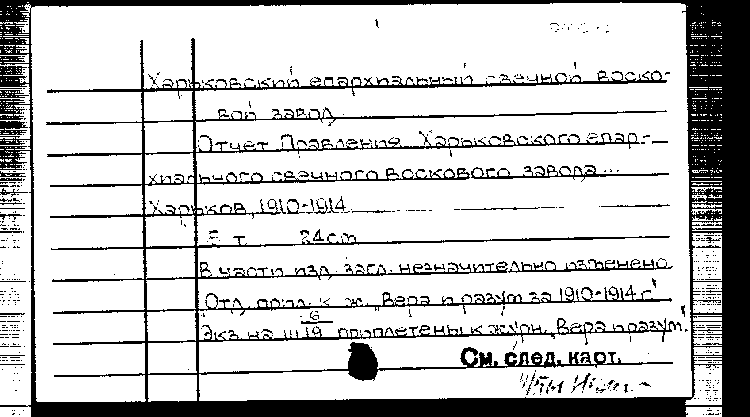 Харьковский епархиальный свечной воско-
вой завод
Отчет Правления Харьковского епар-
хиального свечного воскового завода...
Харьков, 1910-1914
5 т 24 cm
В части изд. загл. незначительно изменено
Отд. прил. к ж. „Вера и разум за 1910-1914 г."
6
Экз. на III 19 приплетены к журн. „Вера и разум".
См. след. карт.